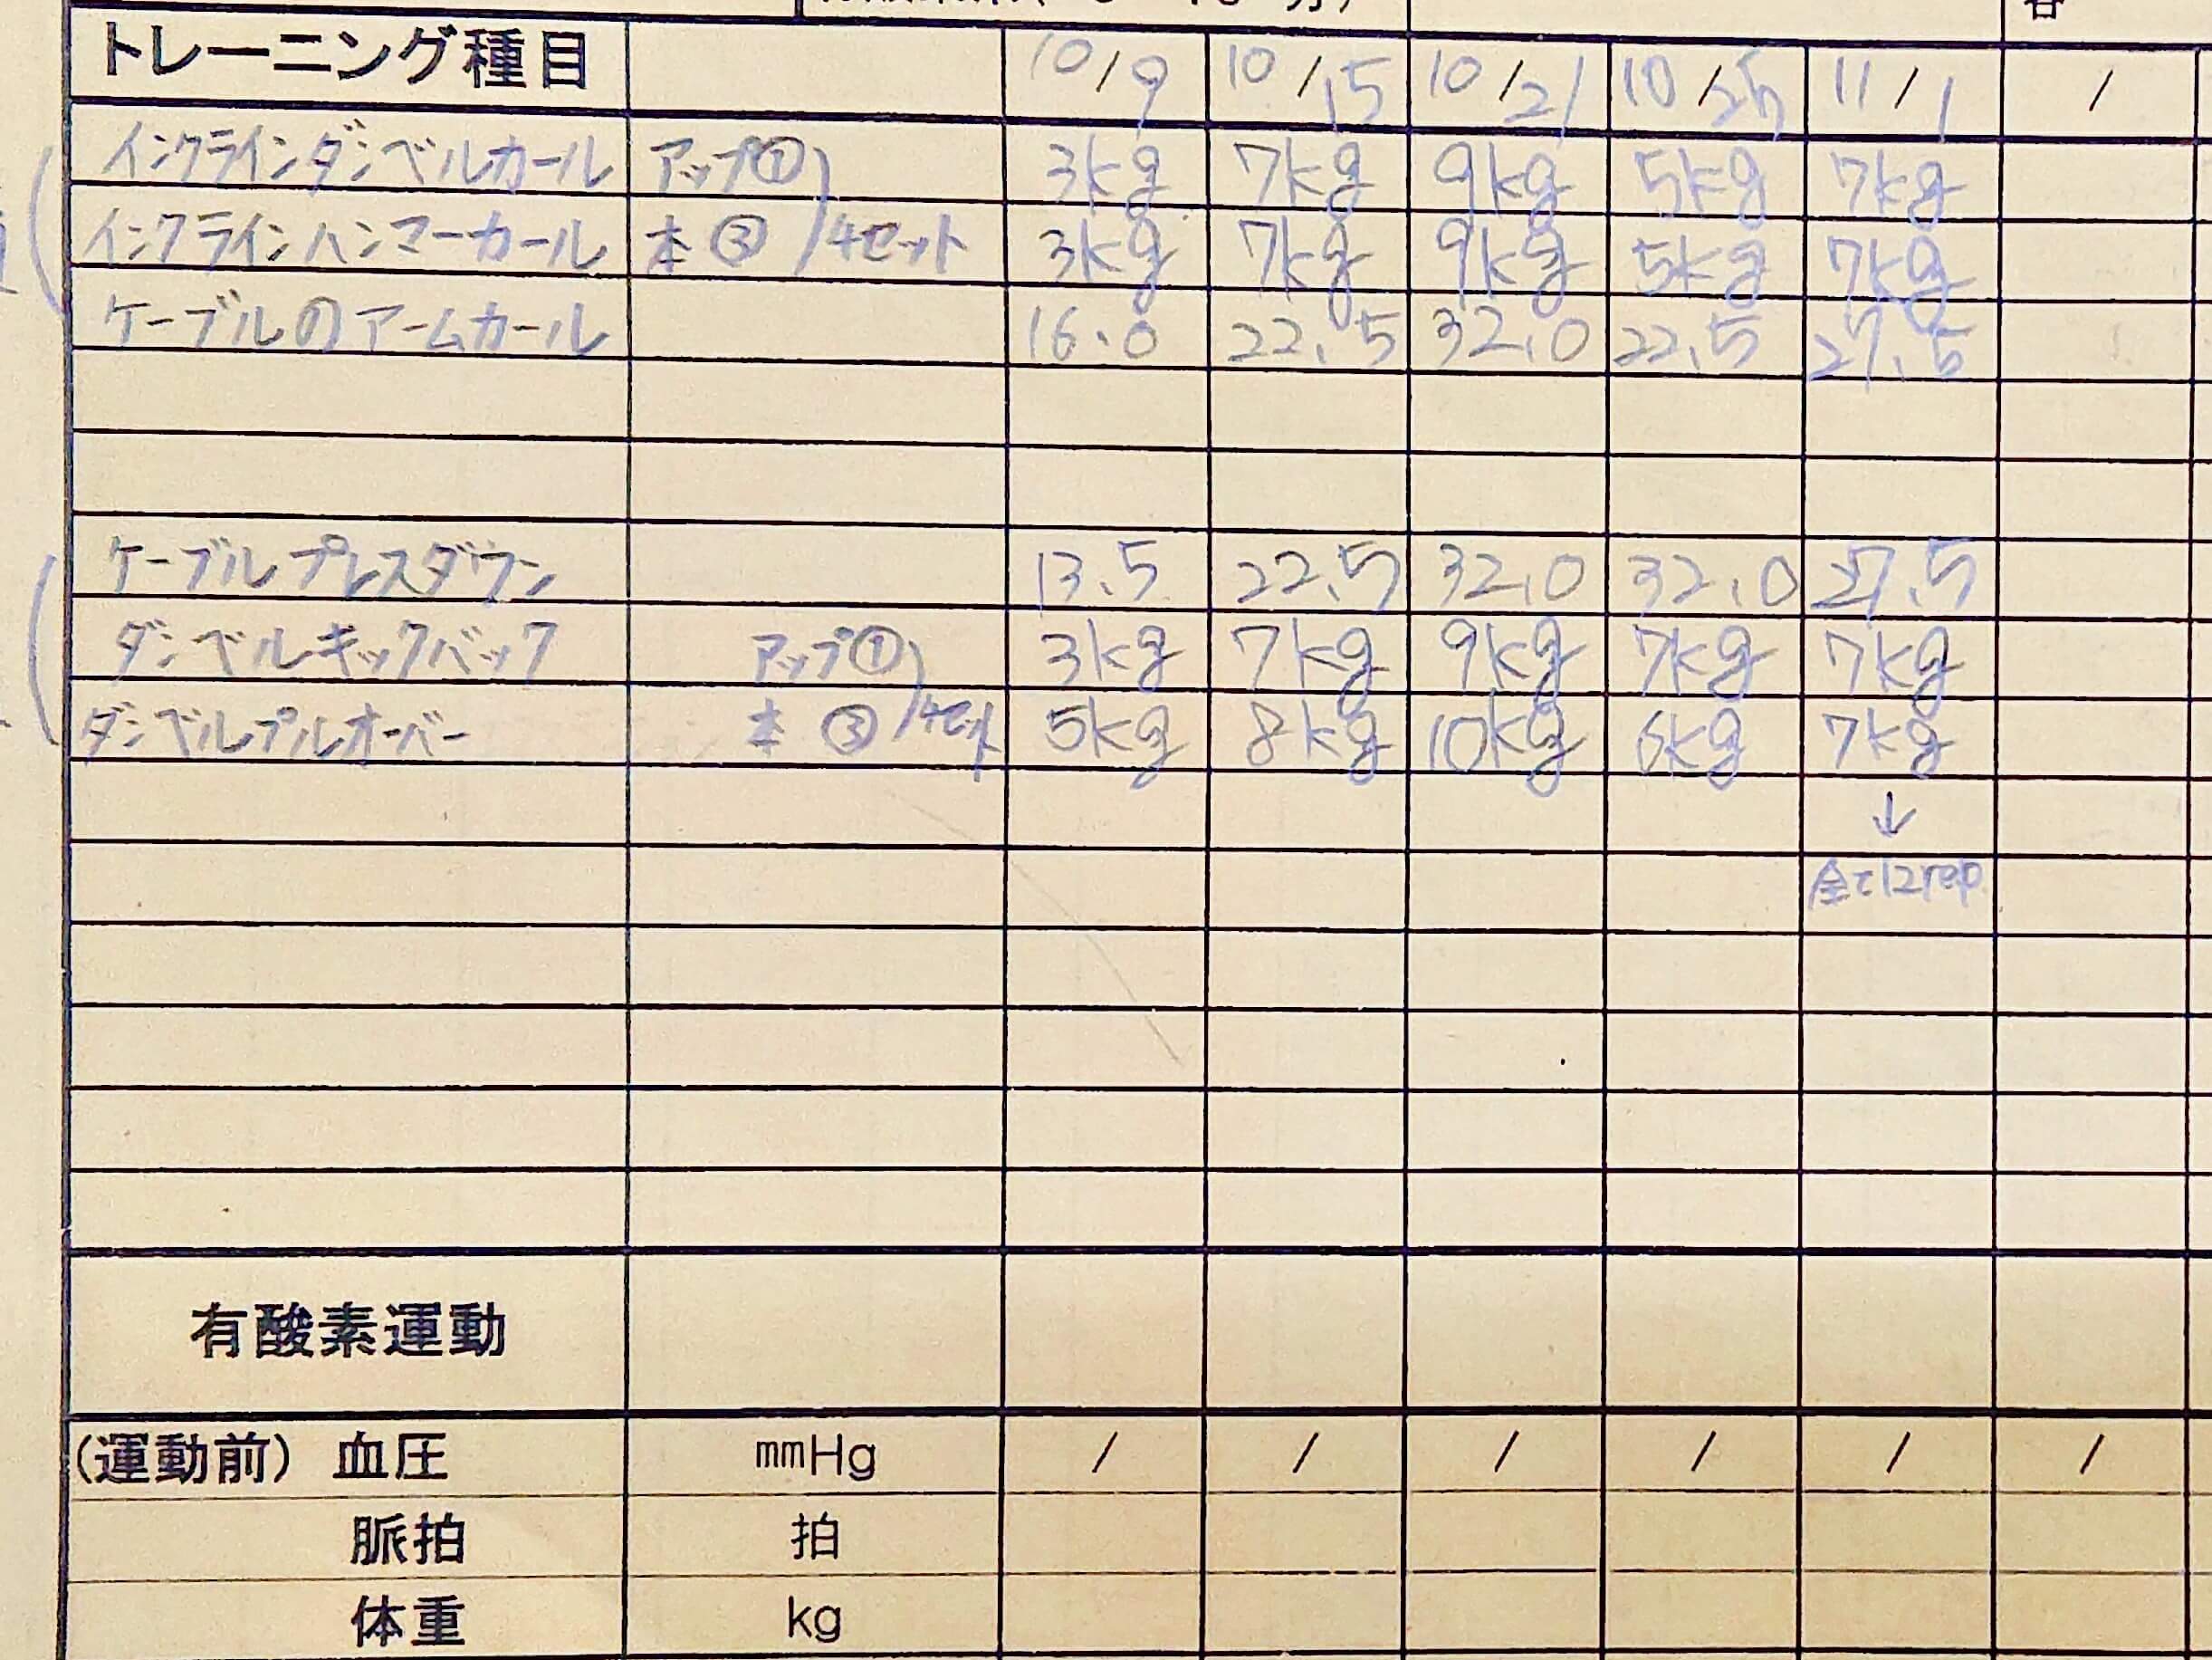 トレーニング種目 10/9 10/15 10/21 10/25 11/1 /
インクラインダンベルカール アップ① 3kg 7kg 9kg 5kg 7kg
インクラインハンマーカール 本③ 4セット 3kg 7kg 9kg 5kg 7kg
ケーブルのアームカール 16.0 22.5 32.0 22.5 27.5
ケーブルプレスダウン 13.5 22.5 32.0 32.0 27.5
ダンベルキックバック アップ① 3kg 7kg 9kg 7kg 7kg
ダンベルプルオーバー 本③ 4セット 5kg 8kg 10kg 6kg 7kg
↓
全て12rep
有酸素運動
(運動前) 血圧 mmHg / / / / / /
脈拍 拍
体重 kg